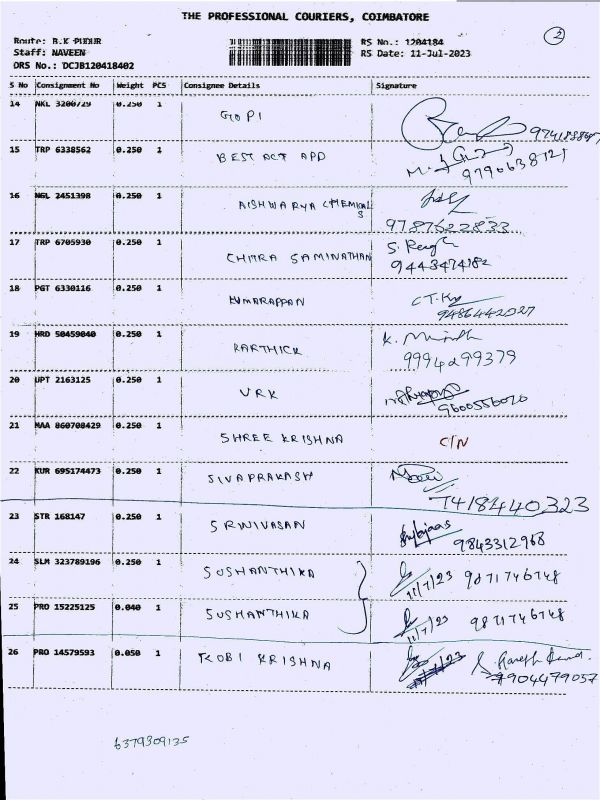 THE PROFESSIONAL COURIERS, COIMBATORE
2
Route: B.K PUDUR
Staff: NAVEEN
DRS No.: DCJB120418402
RS No.: 1204184
RS Date: 11-Jul-2023
S No Consignment No Weight PCS Consignee Details Signature
14 NKL 3200729 0.250 1 GOPI
15 TRP 6338562 0.250 1 BEST ACT APD 9790638121
16 NGL 2451398 0.250 1 AISHWARYA CHEMICALS 9787622833
17 TRP 6705930 0.250 1 CHITRA SAMINATHAN 9443474182
18 PGT 6330116 0.250 1 KUMARAPPAN 9486442027
19 HRD 50459040 0.250 1 KARTHICK 9994299379
20 UPT 2163125 0.250 1 VRK 9600556020
21 MAA 860708429 0.250 1 SHREE KRISHNA C/N
22 KUR 695174473 0.250 1 SIVAPRAKASH 7418440323
23 STR 168147 0.250 1 SRINIVASAN 9843312968
24 SLM 323789196 0.250 1 SUSHANTHIKA 11/7/23 9871746748
25 PRO 15225125 0.040 1 SUSHANTHIKA 11/7/23 9871746748
26 PRO 14579593 0.050 1 KOBI KRISHNA 7904479057
6379309135